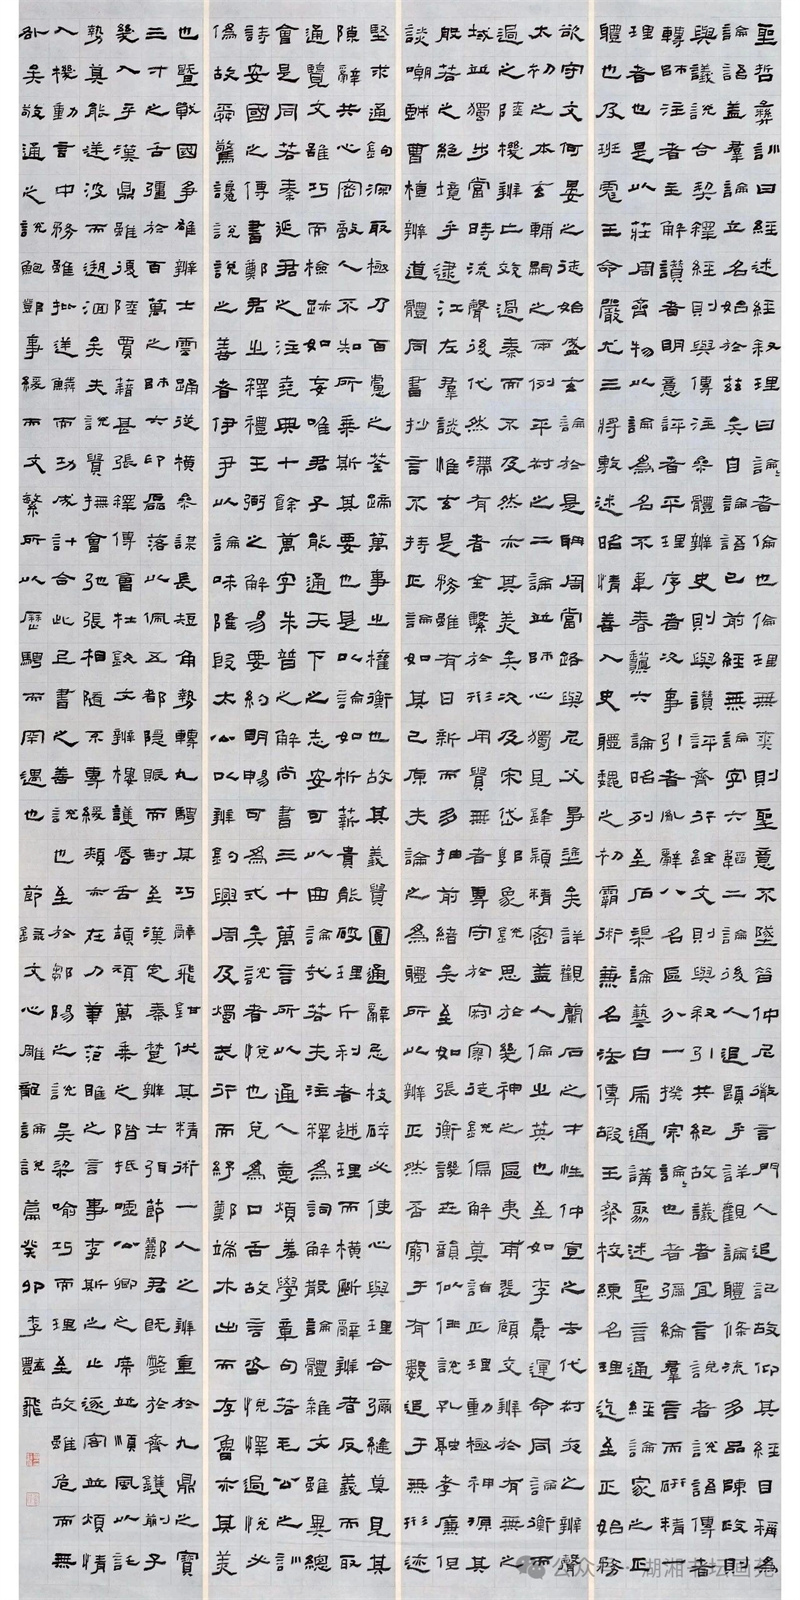 聖哲彝訓曰經述經敘理曰論論者倫也倫理無爽則聖意不墜昔仲尼微言門人追記故仰其經目稱為
論語蓋羣論立名始於茲矣自論語已前經無論字六韜二論後人追題乎詳觀論體條流多品陳政則
與議說合契釋經則與傳注參體辨史則與讚評齊行銓文則與敘引共紀故議者宜言說者說語傳者
轉師注者主解讚者明意評者平理序者次事引者胤辭八名區分一揆宗論論也者彌綸羣言而研精一
理者也是以莊周齊物以論為名不韋春秋六論昭列至石渠論藝白虎通講聚述聖言通經論家之正
體也及班彪王命嚴尤三將敷述昭情善入史體魏之初霸術兼名法傅嘏王粲校練名理迄至正始務
欲守文何晏之徒始盛玄論於是聃周當路與尼父爭塗矣詳觀蘭石之才性仲宣之去代叔夜之辨聲
太初之本玄輔嗣之兩例平叔之二論並師心獨見鋒穎精密蓋人倫之英也至如李康運命同論衡而
過之陸機辨亡效過秦而不及然亦其美矣次及宋岱郭象銳思於幾神之區夷甫裴頠交辨於有無之
域並獨步當時流聲後代然滯有者全繫於形用貴無者專守於寂寥徒銳偏解莫詣正理動極神源其
般若之絕境乎逮江左羣談惟玄是務雖有日新而多抽前緒矣至如張衡譏世韻似俳說孔融孝廉但
談嘲戲曹植辨道體同書抄言不持正論如其已原夫論之為體所以辨正然否窮于有數追于無形迹
堅求通鉤深取極乃百慮之筌蹄萬事之權衡也故其義貴圓通辭忌枝碎必使心與理合彌縫莫見其
隙辭共心密敵人不知所乘斯其要也是以論如析薪貴能破理斤利者越理而橫斷辭辨者反義而取
通覽文雖巧而檢跡如妄唯君子能通天下之志安可以曲論哉若夫注釋為詞解散論體雜文雖異總
會是同若秦延君之注堯典十餘萬字朱普之解尚書三十萬言所以通人惡煩羞學章句若毛公之訓
詩安國之傳書鄭君之釋禮王弼之解易要約明暢可為式矣說者悅也兌為口舌故言咨悅懌過悅必
偽故舜驚讒說說之善者伊尹以論味隆殷太公以辨釣興周及燭武行而紓鄭端木出而存魯亦其美
也暨戰國爭雄辨士雲踊從橫參謀長短角勢轉丸騁其巧辭飛鉗伏其精術一人之辨重於九鼎之寶
三寸之舌彊於百萬之師六印磊落以佩五都隱賑而封至漢定秦楚辨士弭節酈君既斃於齊鑊蒯子
幾入乎漢鼎雖復陸賈藉甚張釋傅會杜欽文辨樓護脣舌頡頏萬乘之階抵噓公卿之席並順風以託
勢莫能逆波而遡洄矣夫說貴撫會弛張相隨不專緩頰亦在刀筆范雎之言事李斯之止逐客並煩情
入機動言中務雖批逆鱗而功成計合此上書之善說也至於鄒陽之說吳梁喻巧而理至故雖危而無
咎矣敬通之說鮑鄧事緩而文繁所以歷騁而罕遇也 節錄文心雕龍論說篇癸卯李豔飛
公众号·湖湘书坛画苑